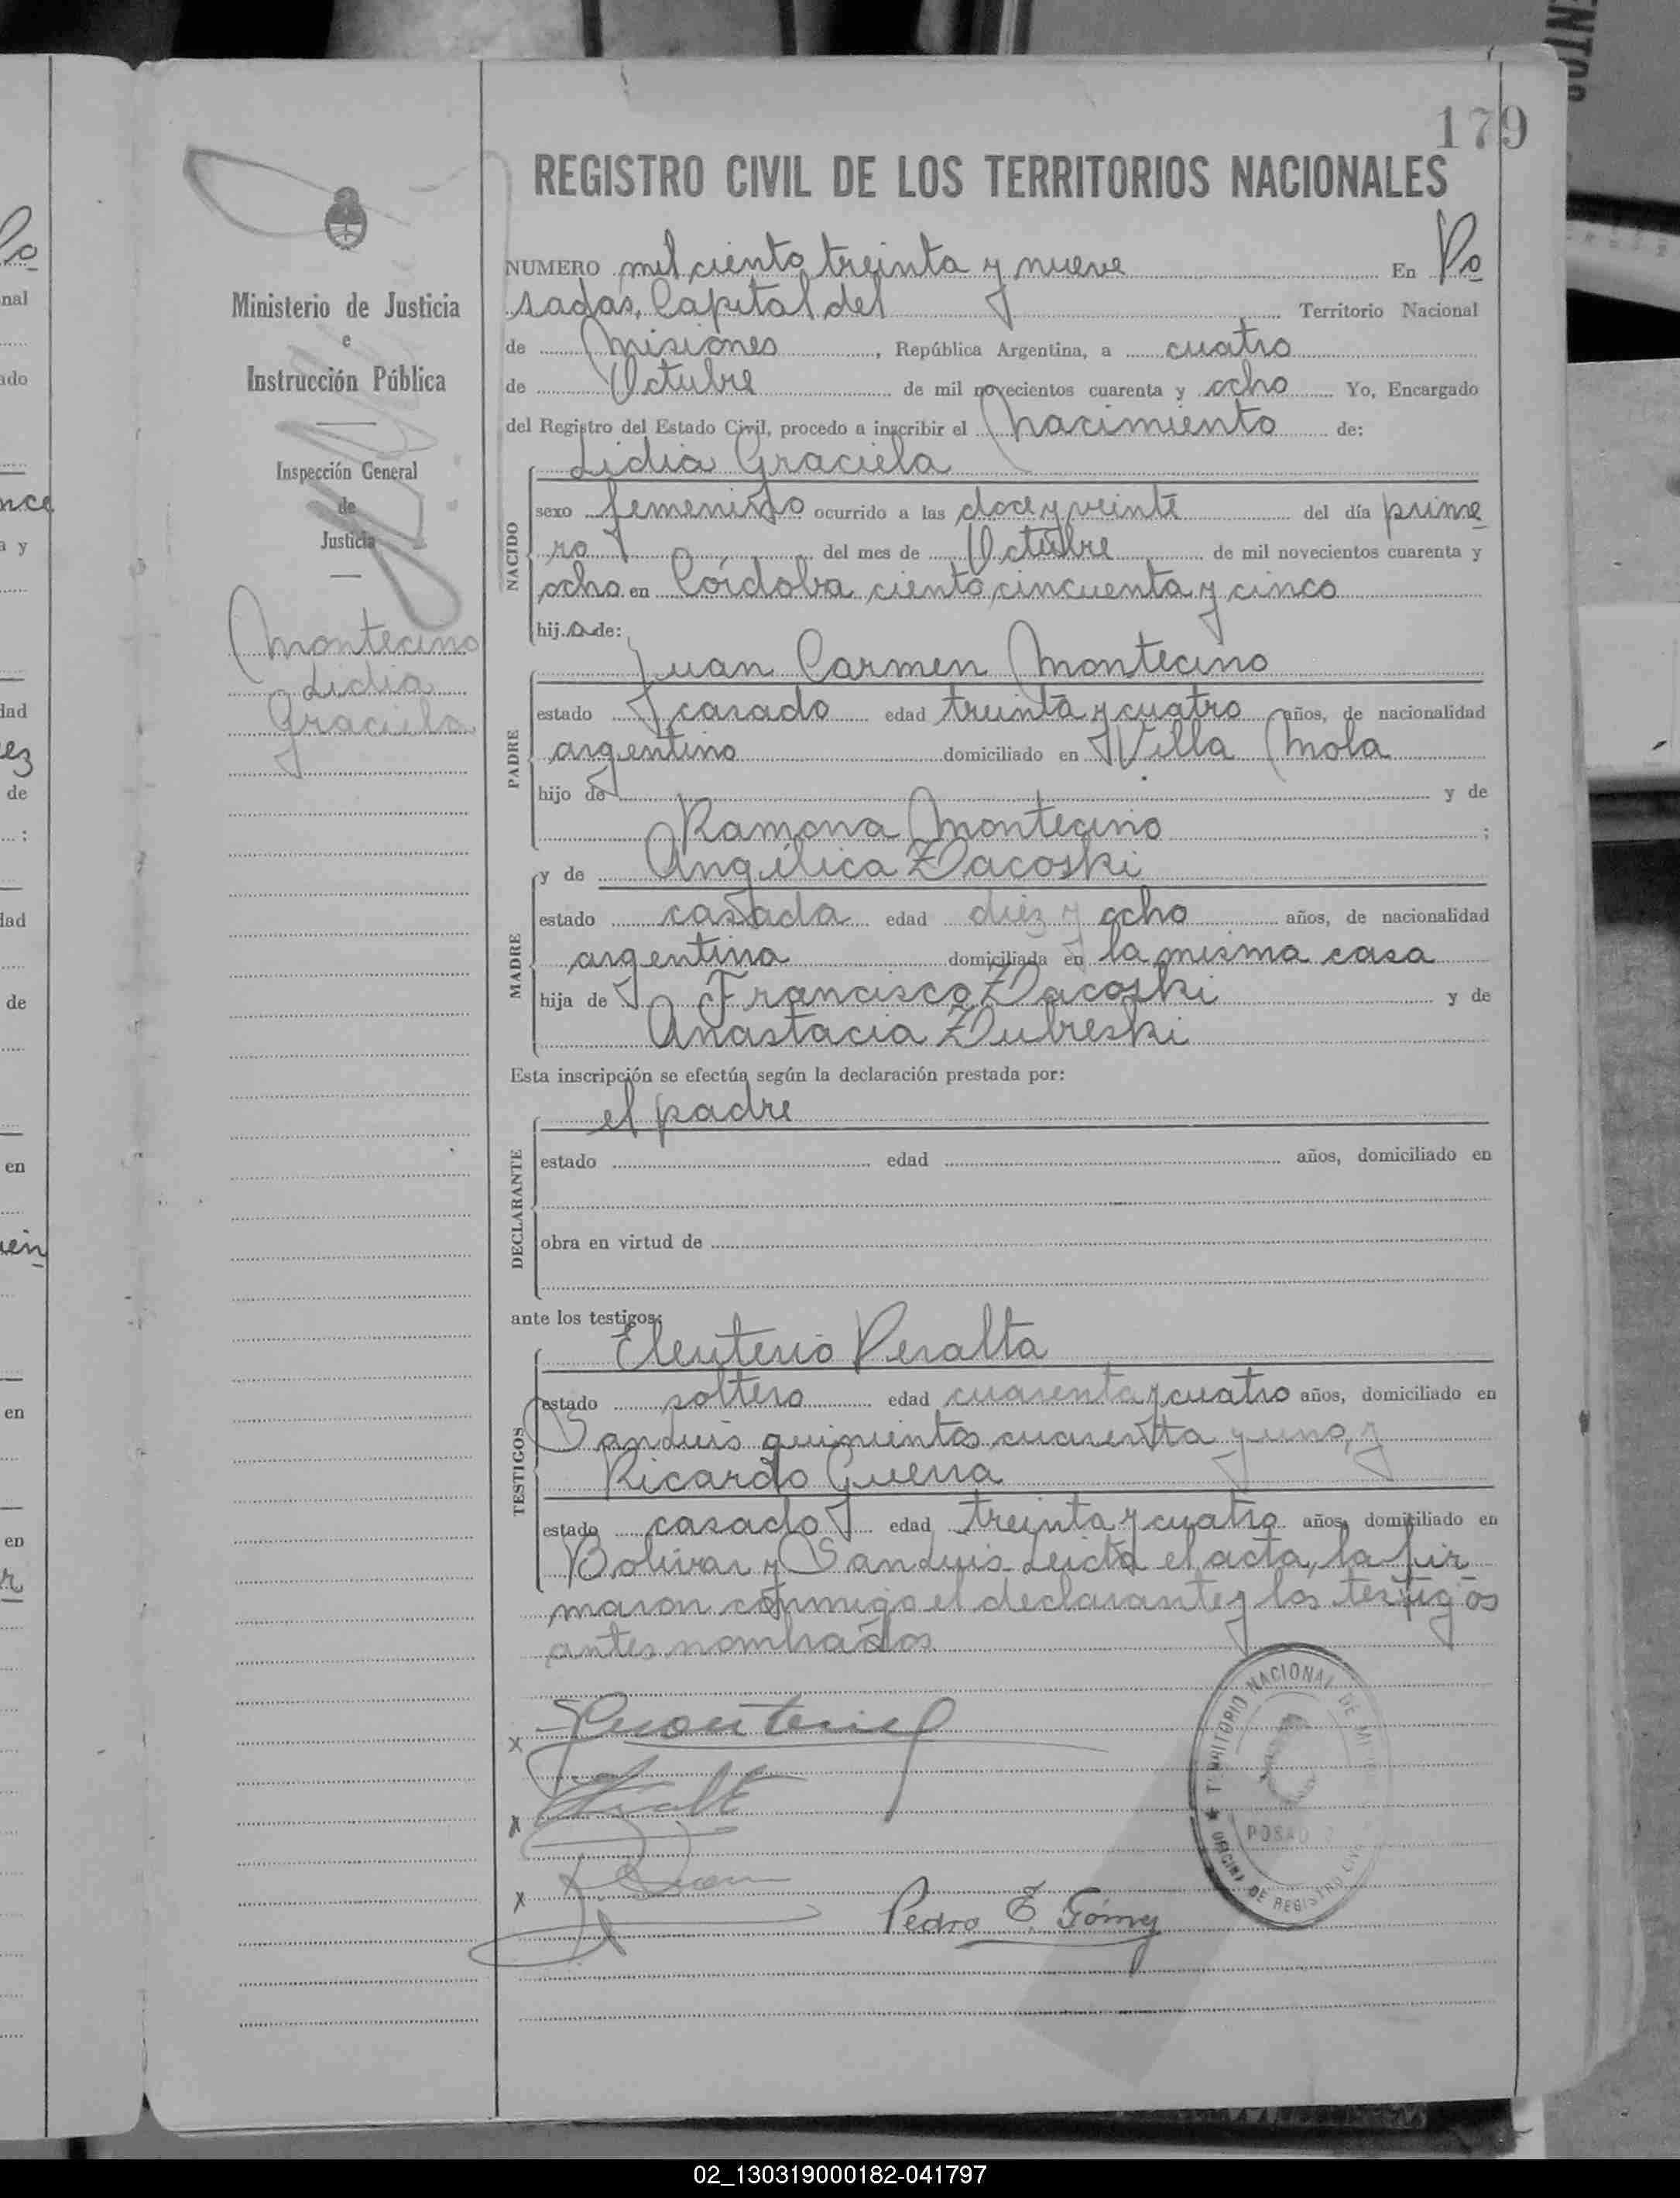 179
REGISTRO CIVIL DE LOS TERRITORIOS NACIONALES
Ministerio de Justicia
e
Instrucción Pública
Inspección General
de
Justicia
Montecino
Lidia
Graciela
NUMERO mil ciento treinta y nueve En Po
sadas, Capital del Territorio Nacional
de Misiones, República Argentina, a cuatro
de Octubre de mil novecientos cuarenta y ocho Yo, Encargado
del Registro del Estado Civil, procedo a inscribir el nacimiento de:
Lidia Graciela
NACIDO
sexo femenino ocurrido a las doce y veinte del día prime
ro del mes de Octubre de mil novecientos cuarenta y
ocho en Córdoba ciento cincuenta y cinco
hija de:
Juan Carmen Montecino
PADRE
estado casado edad treinta y cuatro años, de nacionalidad
argentino domiciliado en Villa Mola
hijo de y de
Ramona Montecino;
y de Angélica Dacoski
MADRE
estado casada edad diez y ocho años, de nacionalidad
argentina domiciliada en la misma casa
hija de Francisco Dacoski y de
Anastacia Dubreski
Esta inscripción se efectúa según la declaración prestada por:
el padre
DECLARANTE
estado edad años, domiciliado en
obra en virtud de
ante los testigos:
Eleuterio Peralta
TESTIGOS
estado soltero edad cuarenta y cuatro años, domiciliado en
San Luis quinientos cuarenta y uno, y
Ricardo Guerra
estado casado edad treinta y cuatro años, domiciliado en
Bolívar y San Luis. Leida el acta, la fir
maron conmigo el declarante y los testigos
antes nombrados
x
x
x
Pedro E. Gómez
TERRITORIO NACIONAL DE
POSAD
OFICINA DE REGISTRO CIVIL
02_130319000182-041797